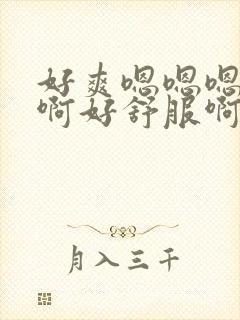 好爽嗯嗯嗯
啊好舒服啊
月入三千